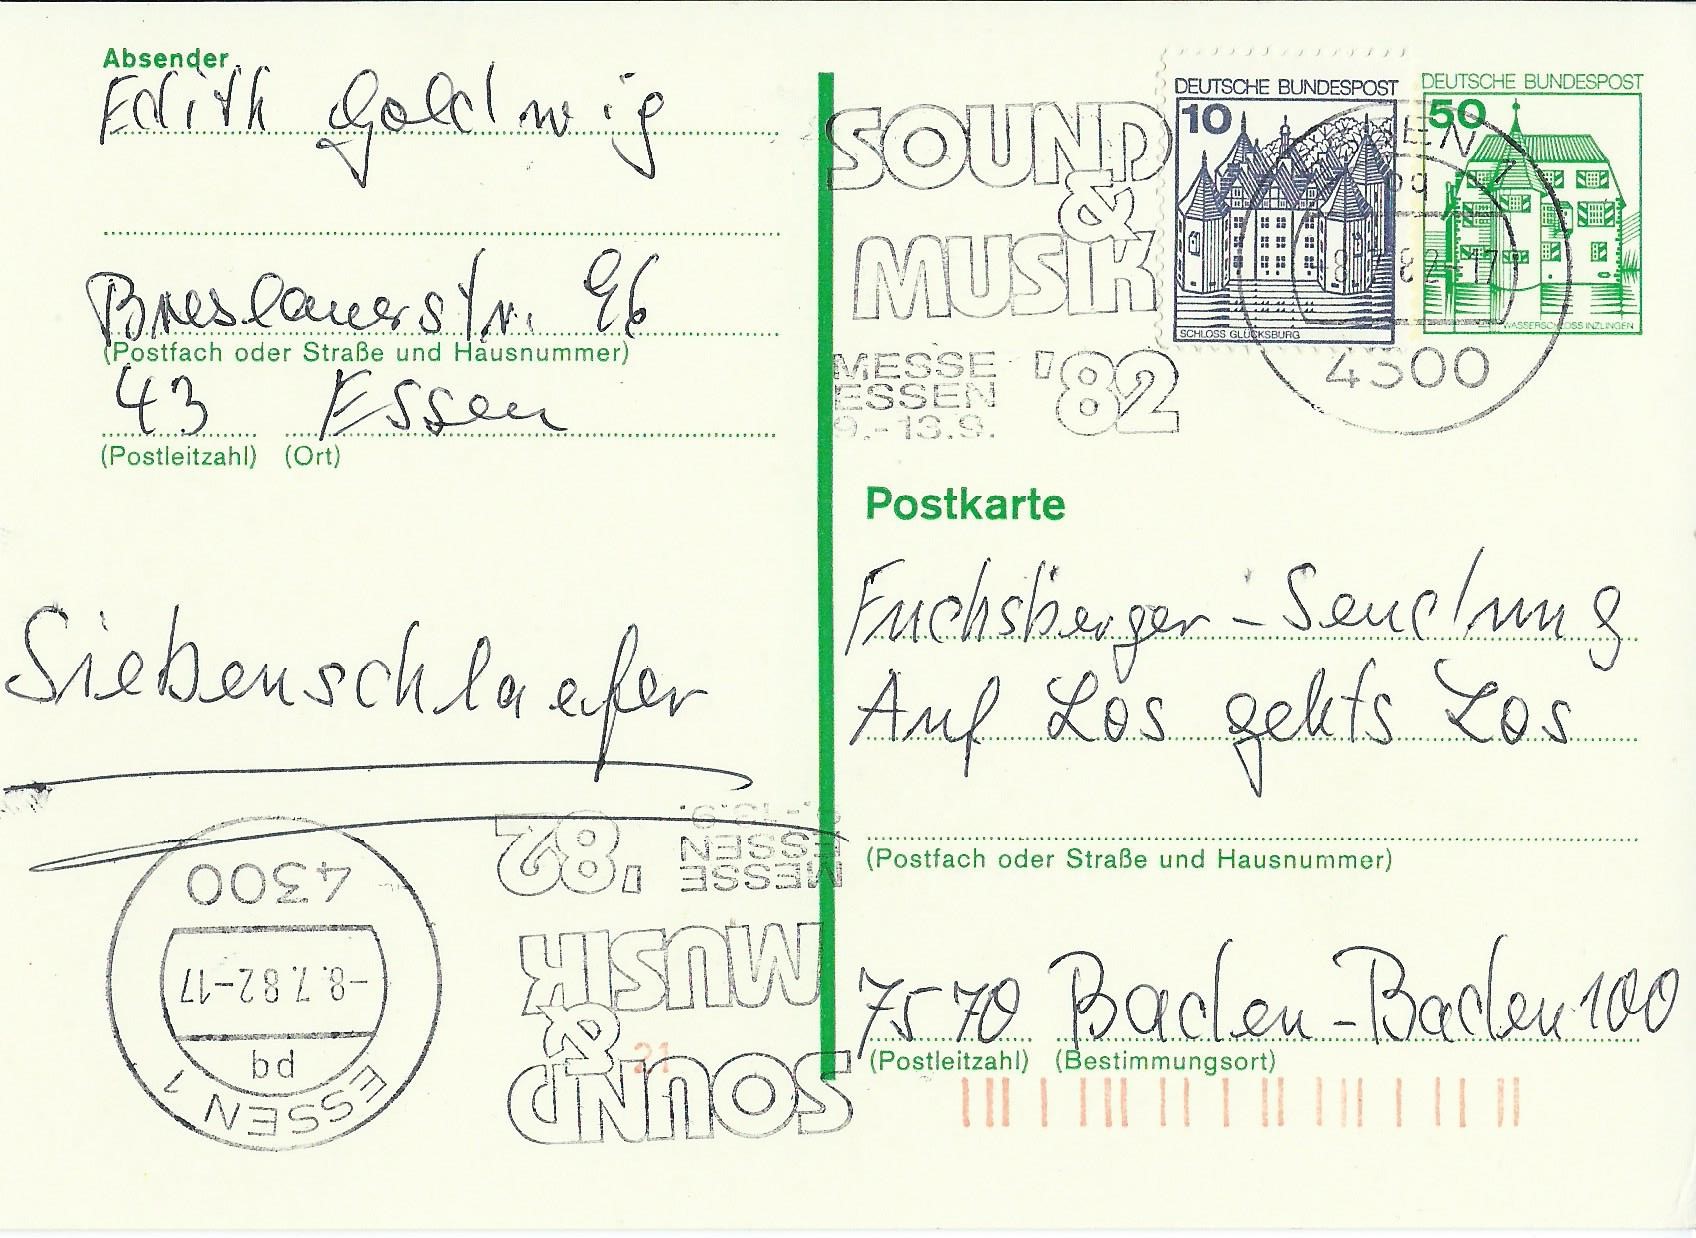 Absender
Edith Goldwig
Breslauerstr. 96
(Postfach oder Straße und Hausnummer)
43 Essen
(Postleitzahl) (Ort)
Siebenschlaefer
SOUND
&
MUSIK
MESSE
ESSEN
9.-13.9.
'82
DEUTSCHE BUNDESPOST
10
SCHLOSS GLÜCKSBURG
DEUTSCHE BUNDESPOST
50
WASSERSCHLOSS INZLINGEN
4300
Postkarte
Fuchsberger-Sendung
Auf Los gehts Los
(Postfach oder Straße und Hausnummer)
7570 Baden-Baden 100
(Postleitzahl) (Bestimmungsort)
21
ESSEN 1
pq
-8.7.82-17
4300
SOUND
&
MUSIK
MESSE
ESSEN
'82